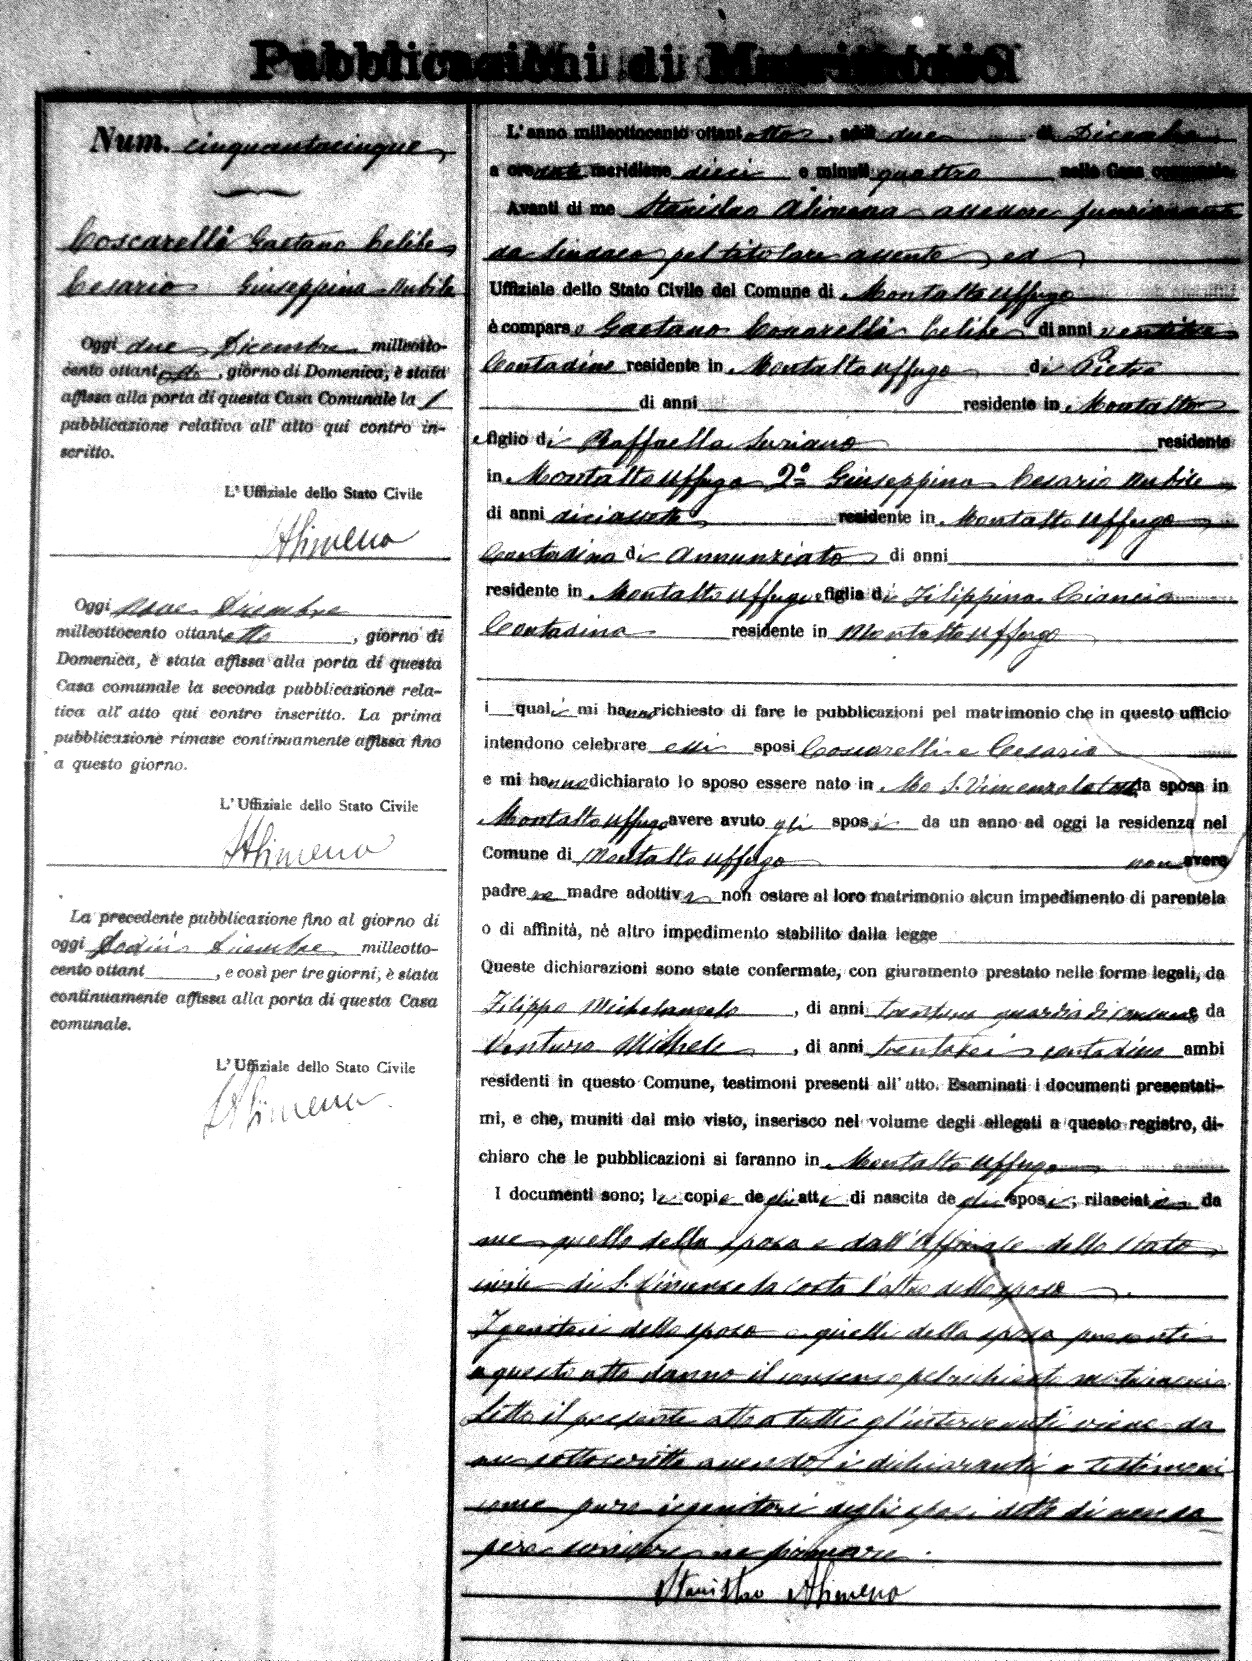 Pubblicazioni di Matrimonio
Num. cinquantacinque
Coscarelli Gaetano Celibe
Cesario Giuseppina Nubile
Oggi due Dicembre milleotto-
cento ottant otto, giorno di Domenica, è stata
affissa alla porta di questa Casa Comunale la 1
pubblicazione relativa all' atto qui contro in-
scritto.
L'Uffiziale dello Stato Civile
SAlimena
Oggi nove Dicembre
milleottocento ottantotto, giorno di
Domenica, è stata affissa alla porta di questa
Casa comunale la seconda pubblicazione rela-
tiva all' atto qui contro inscritto. La prima
pubblicazione rimase continuamente affissa fino
a questo giorno.
L'Uffiziale dello Stato Civile
SAlimena
La precedente pubblicazione fino al giorno di
oggi Dodici Dicembre milleotto-
cento ottant , e così per tre giorni, è stata
continuamente affissa alla porta di questa Casa
comunale.
L'Uffiziale dello Stato Civile
SAlimena
L'anno milleottocento ottantotto, addì due di Dicembre
a ore ante meridiane dieci e minuti quattro, nella Casa comunale.
Avanti di me Stanislao Alimena assessore funzionante
da Sindaco pel titolare assente ed
Uffiziale dello Stato Civile del Comune di Montalto Uffugo
è comparso Gaetano Coscarelli Celibe di anni ventitre
Contadino residente in Montalto Uffugo di Pietro
di anni residente in Montalto
e figlio di Raffaella Suriano residente
in Montalto Uffugo 2º Giuseppina Cesario nubile
di anni diciassette residente in Montalto Uffugo
Contadina di Annunziato di anni
residente in Montalto Uffugo e figlia di Filippina Ciancio
Contadina residente in Montalto Uffugo
i quali mi hanno richiesto di fare le pubblicazioni pel matrimonio che in questo ufficio
intendono celebrare essi sposi Coscarelli e Cesario
e mi hanno dichiarato lo sposo essere nato in S. Vincenzo la sposa in
Montalto Uffugo avere avuto gli sposi da un anno ad oggi la residenza nel
Comune di Montalto Uffugo non avere
padre ne madre adottivi non ostare al loro matrimonio alcun impedimento di parentela
o di affinità, nè altro impedimento stabilito dalla legge
Queste dichiarazioni sono state confermate, con giuramento prestato nelle forme legali, da
Filippo Michelangelo, di anni guardia da
Ventura Michele, di anni trentasei contadino ambi
residenti in questo Comune, testimoni presenti all' atto. Esaminati i documenti presentati-
mi, e che, muniti dal mio visto, inserisco nel volume degli allegati a questo registro, di-
chiaro che le pubblicazioni si faranno in Montalto Uffugo
I documenti sono; le copie degli atti di nascita degli sposi, rilasciati da
me quello della sposa e dall'Uffiziale dello Stato
civile di S. Vincenzo la Costa l'altro dello sposo.
I genitori dello sposo e quelli della sposa presenti
a questo atto danno il consenso pel richiesto matrimonio.
Letto il presente atto a tutti gl'intervenuti viene da
me sottoscritto avendo i dichiaranti e testimoni
come pure i genitori degli sposi detto di non sa
pere scrivere ne firmare.
Stanislao Alimena